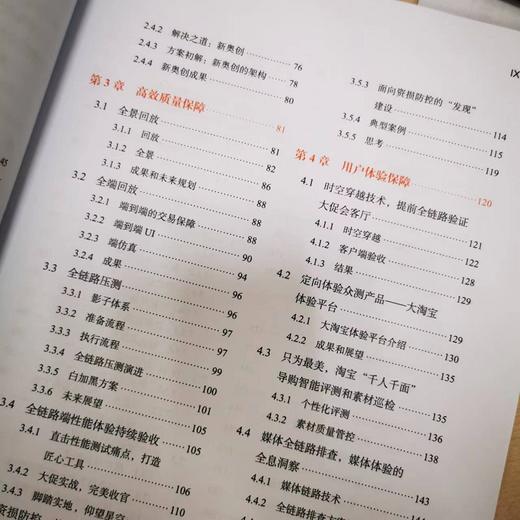 IX
2.4.2 解决之道：新奥创 76
2.4.3 方案初解：新奥创的架构 78
2.4.4 新奥创成果 80
第 3 章 高效质量保障 81
3.1 全景回放 81
3.1.1 回放 82
3.1.2 全景 86
3.1.3 成果和未来规划 87
3.2 全端回放 88
3.2.1 端到端的交易保障 88
3.2.2 端到端 UI 90
3.2.3 端仿真 94
3.2.4 成果 96
3.3 全链路压测 96
3.3.1 影子体系 97
3.3.2 准备流程 97
3.3.3 执行流程 99
3.3.4 全链路压测演进 100
3.3.5 白加黑方案 101
3.3.6 未来展望 105
3.4 全链路端性能体验持续验收 105
3.4.1 直击性能测试痛点，打造
匠心工具 106
3.4.2 大促实战，完美收官
3.4.3 脚踏实地，仰望星空
资损防控，
3.5.3 面向资损防控的“发现”
建设 114
3.5.4 典型案例 115
3.5.5 思考 119
第 4 章 用户体验保障 120
4.1 时空穿越技术，提前全链路验证
大促会客厅 121
4.1.1 时空穿越 122
4.1.2 客户端验收 128
4.1.3 结果 129
4.2 定向体验众测产品——大淘宝
体验平台 129
4.2.1 大淘宝体验平台介绍 130
4.2.2 成果和展望 135
4.3 只为最美，淘宝“千人千面”
导购智能评测和素材巡检 135
4.3.1 个性化评测 136
4.3.2 素材质量管控 138
4.4 媒体全链路排查，媒体体验的
全息洞察 143
4.4.1 媒体链路技术 144
4.4.2 全链路排查